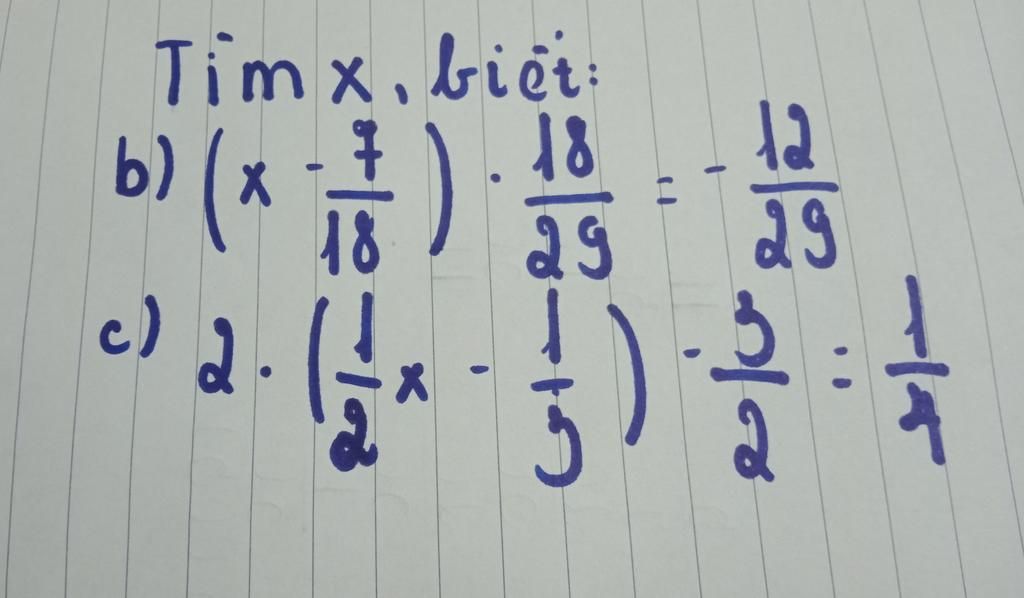 Tìm x, biết:
b) (x - 7/18) . 18/29 = - 12/29
c) 2 . (1/2 x - 1/3) - 3/2 = 1/4